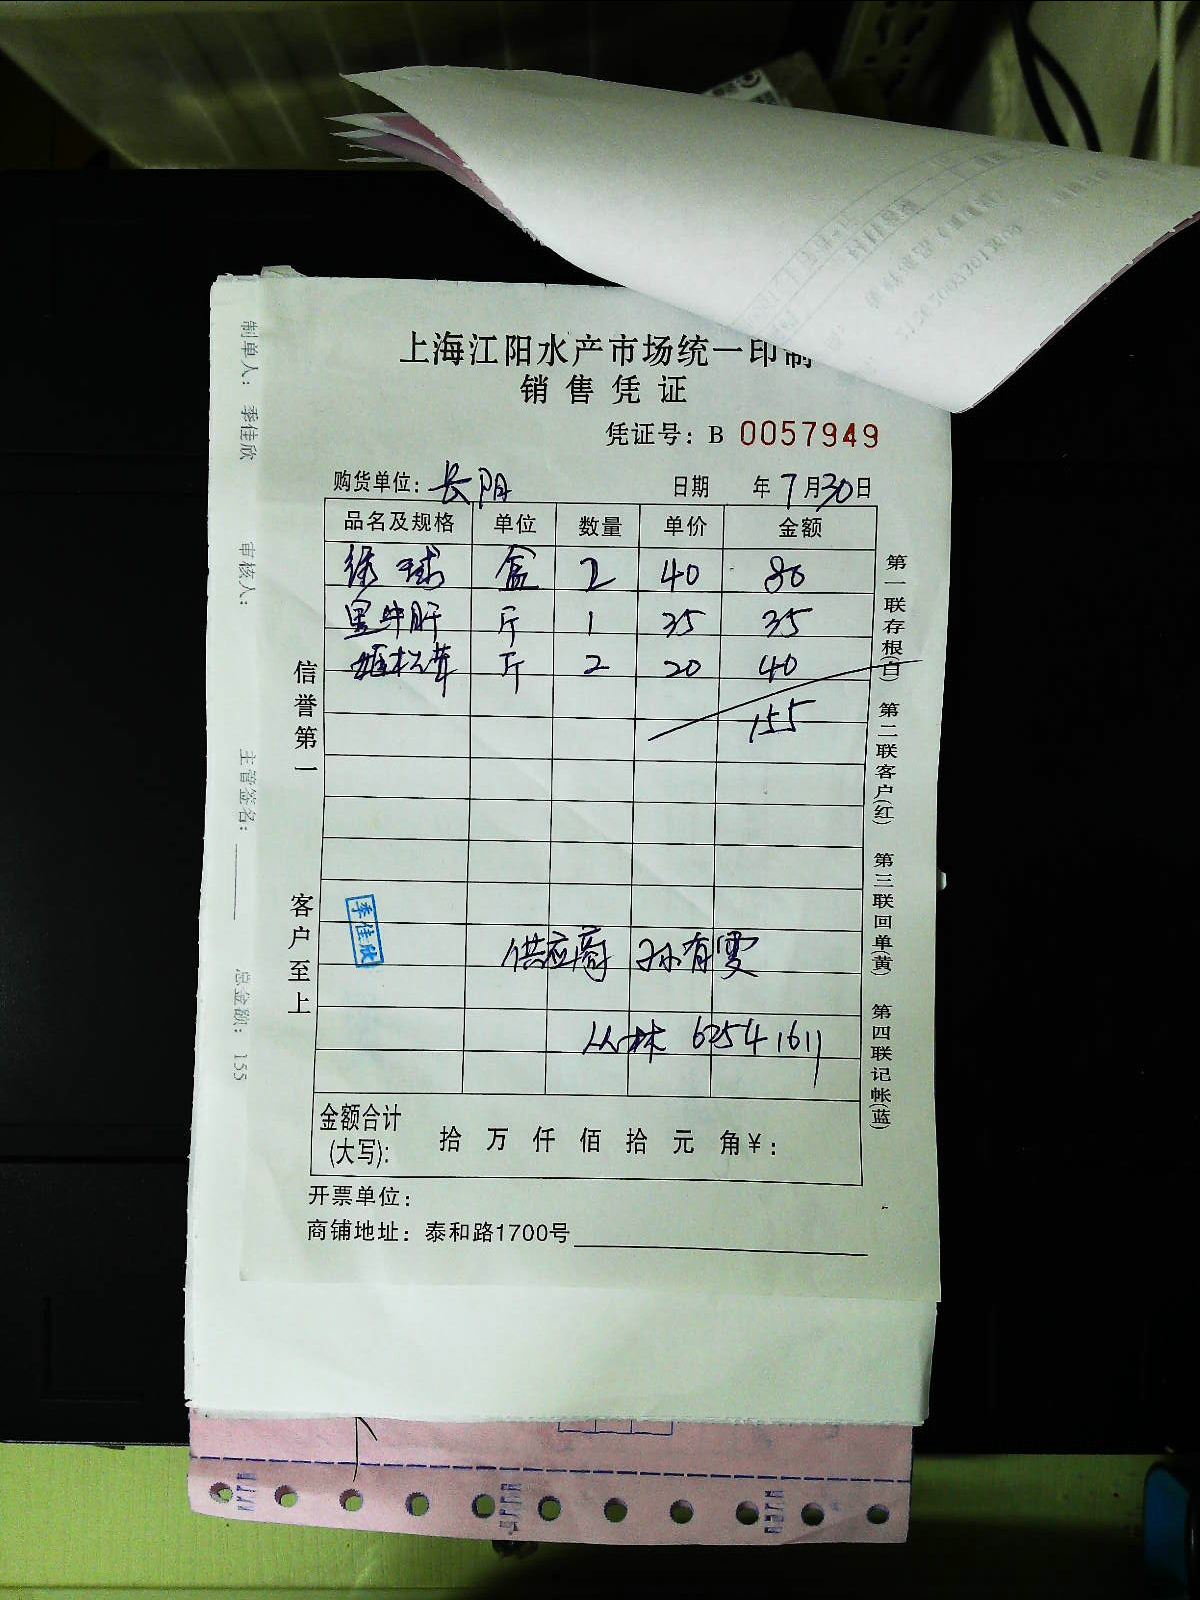 上海江阳水产市场统一印制
销售凭证
凭证号：B 0057949
购货单位：长阳 日期 年7月30日
品名及规格 单位 数量 单价 金额
绿球 盒 2 40 80
黑牛肝 斤 1 35 35
姬松茸 斤 2 20 40
155
供应商 孙有雯
丛林 62541611
金额合计
(大写)： 拾 万 仟 佰 拾 元 角￥：
开票单位：
商铺地址：泰和路1700号
信誉第一 客户至上
第一联存根(白) 第二联客户(红) 第三联回单(黄) 第四联记帐(蓝)
季佳欣
制单人：季佳欣 审核人： 主管签名： 总金额：155